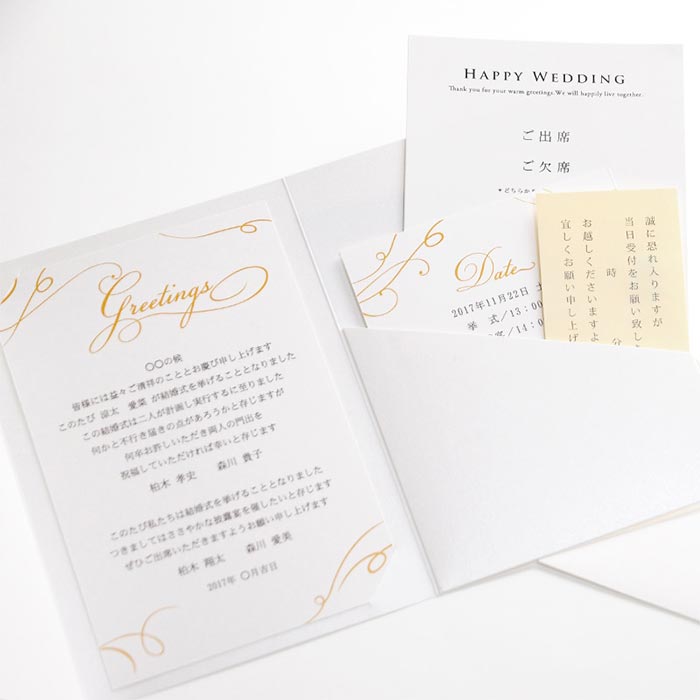 Greetings
○○の候
皆様には益々ご清祥のこととお慶び申し上げます
このたび 涼太 愛菜 が結婚式を挙げることとなりました
この結婚式は二人が計画し実行するに至りました
何かと不行き届きの点があろうかと存じますが
何卒お許しいただき両人の門出を
祝福していただければ幸いと存じます
柏木 孝史 森川 貴子
このたび私たちは結婚式を挙げることとなりました
つきましてはささやかな披露宴を催したいと存じます
ぜひご出席いただきますようお願い申し上げます
柏木 翔太 森川 愛美
2017年 ○月吉日
HAPPY WEDDING
Thank you for your warm greetings.We will happily live together.
ご出席
ご欠席
Date
2017年11月22日
挙 式/13:0
/14:0
誠に恐れ入りますが
当日受付をお願い致し
時 分
お越しくださいますよ
宜しくお願い申し上げ